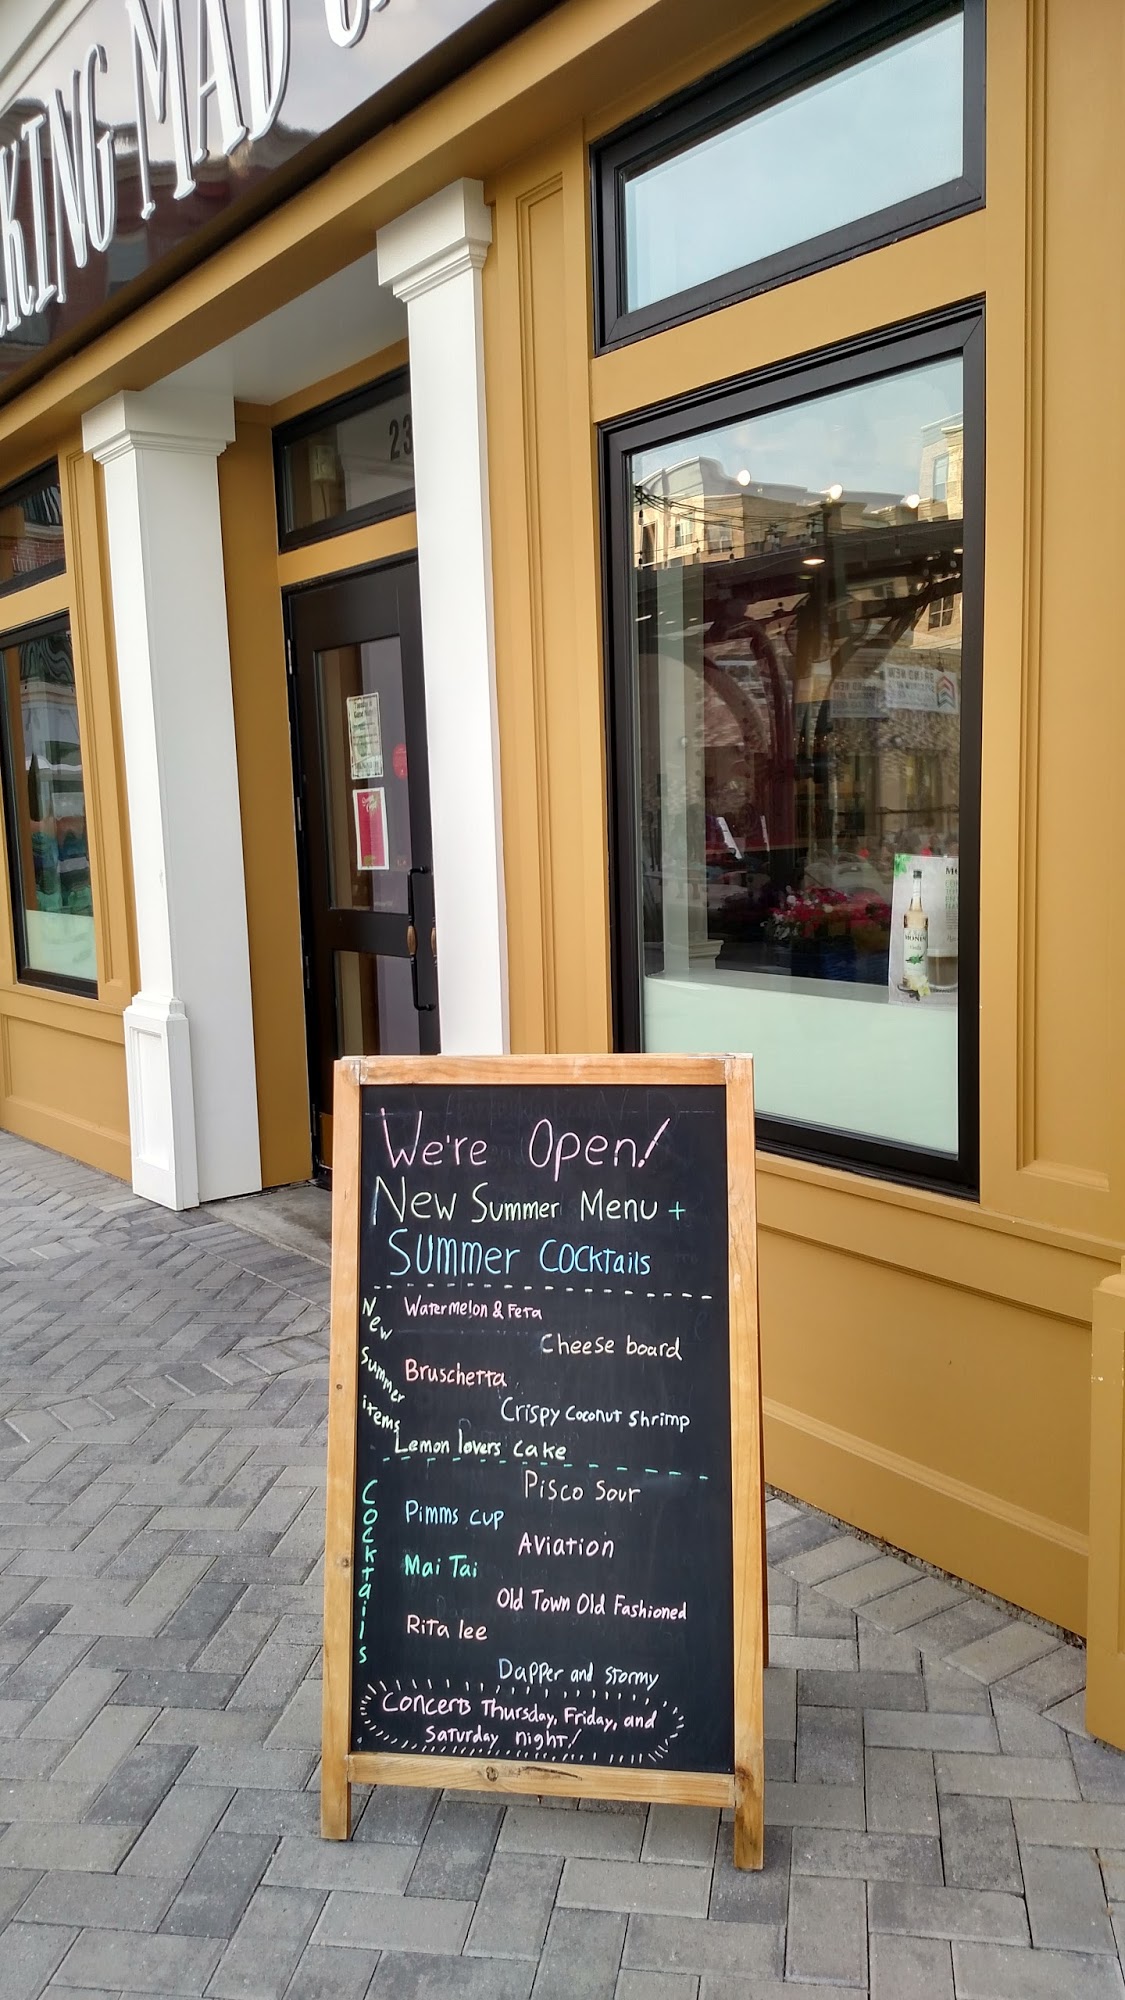 KING MAD
23
We're Open!
New Summer Menu +
Summer Cocktails
New Summer items
Watermelon & Feta
Cheese board
Bruschetta
Crispy Coconut Shrimp
Lemon lovers cake
Cocktails
Pisco Sour
Pimms cup
Aviation
Mai Tai
Old Town Old Fashioned
Rita lee
Dapper and stormy
Concerts Thursday, Friday, and
Saturday night!